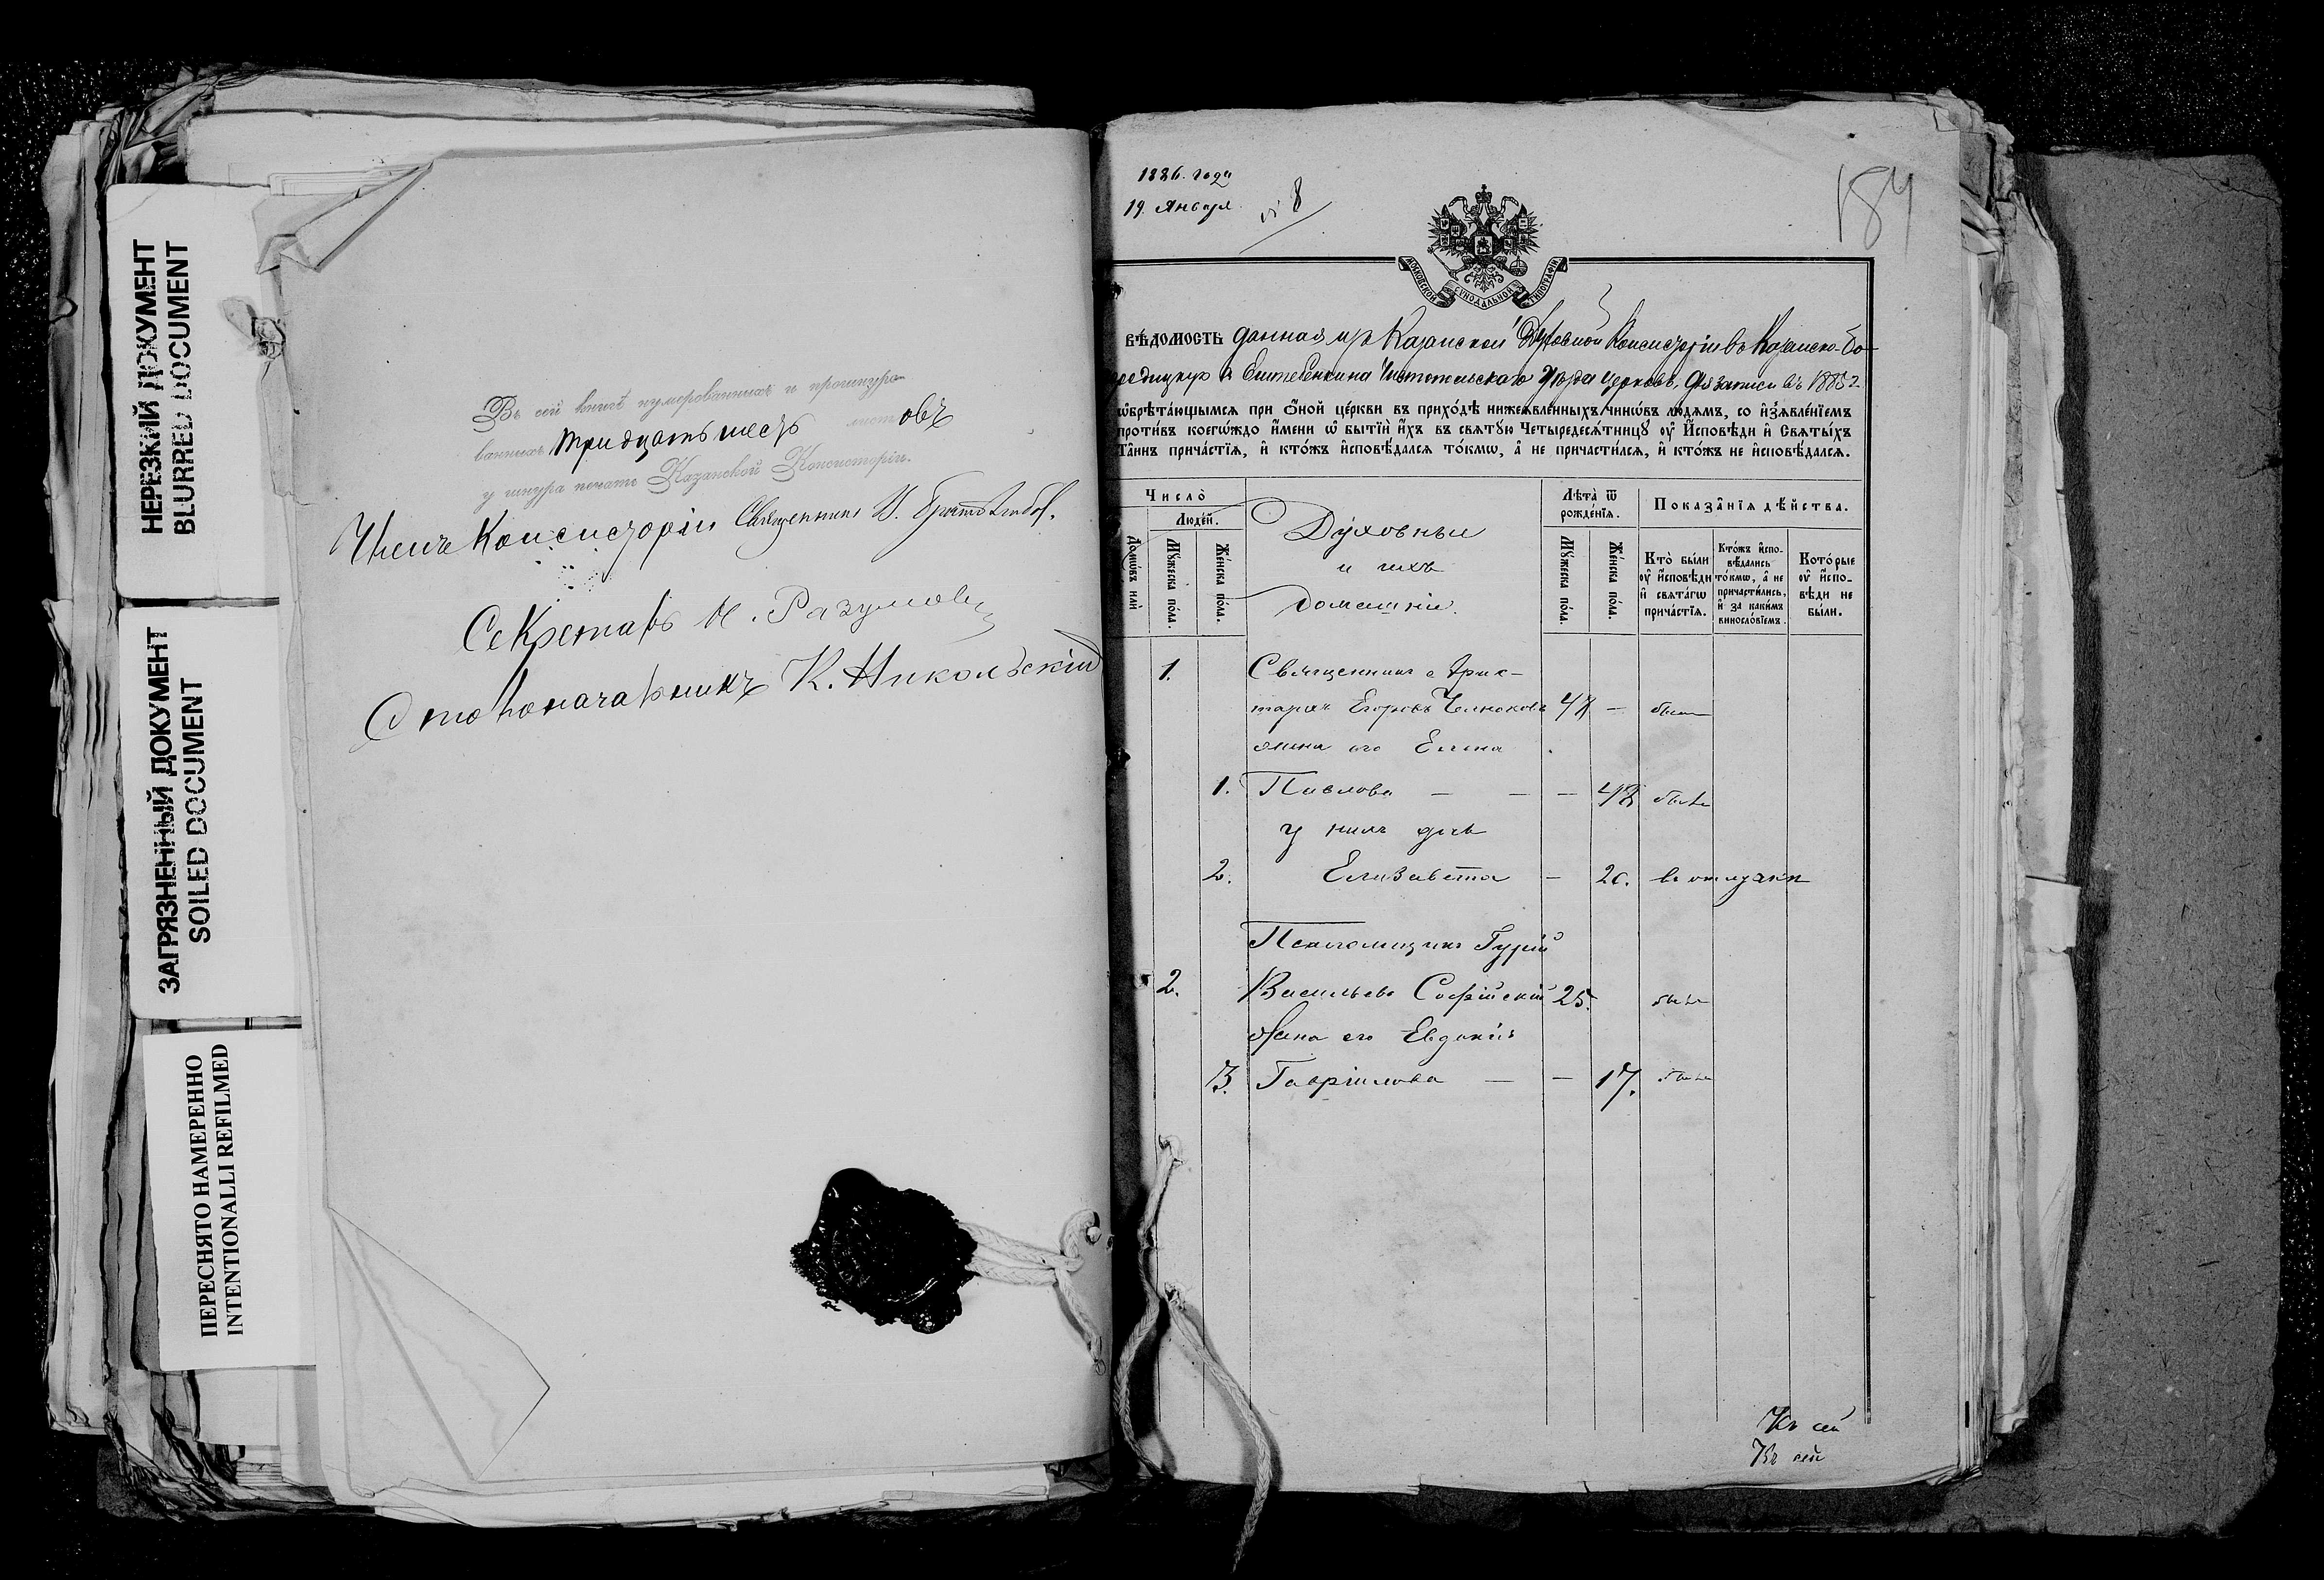 НЕРЕЗКИЙ ДОКУМЕНТ
BLURRED DOCUMENT
ЗАГРЯЗНЕННЫЙ ДОКУМЕНТ
SOILED DOCUMENT
ПЕРЕСНЯТО НАМЕРЕННО
INTENTIONALLI REFILMED
Въ сей книгѣ нумерованныхъ и прошнуро-
ванныхъ тридцать шесть листовъ
у шнура печать Казанской Консисторіи.
Членъ Консисторіи Священникъ
Секретарь Н. Разумовъ
Столоначальникъ К. Никольскій
1886. года
19. Января
№ 8
184
МОСКОВСКОЙ СѴНОДАЛЬНОЙ ТѴПОГРАФІИ
ВѢДОМОСТЬ данная изъ Казанской Духовной Консисторіи въ Казанско-Бо-
Чистопольскаго Уѣзда церковь, для записи въ 1885 г.
ѡбрѣта́ющымсѧ при ѻ҆́ной це́ркви въ прихо́дѣ нижеꙗвле́нныхъ чинѡ́въ лю́демъ, со и҆з̾ꙗвле́нїемъ
проти́въ коегѡ́ждо и҆́мени ѡ҆ бытїѝ и҆́хъ въ свѧтꙋ́ю Четыредесѧ́тницꙋ ᲂу҆ И҆́сповѣди и҆ Свѧты́хъ
Та̂инъ прича́стїѧ, и҆ кто́жъ и҆сповѣ́далсѧ то́кмѡ, а҆ не причасти́лсѧ, и҆ кто́жъ не и҆сповѣ́далсѧ.
Число̀
Люде́й.
Домѡ́въ и҆лѝ
Мꙋ́жеска по́ла.
Же́нска по́ла.
Духовные
и ихъ
домашніе.
Лѣ́та ѿ рожде́нїѧ.
Мꙋ́жеска по́ла.
Же́нска по́ла.
Показа̂нїѧ дѣ́йства.
Кто̀ бы́ли ᲂу҆ и҆́сповѣди и҆ свѧта́гѡ прича́стїѧ.
Кто́жъ и҆спо-вѣ́дались то́кмѡ, а҆ не причасти́лись, и҆ за каки́мъ виносло́вїемъ.
Кото́рые ᲂу҆ и҆́спо-вѣди не бы́ли.
1. Священникъ Арис-
тархъ Егоровъ Челноковъ 48 — былъ
жена его Елена
1. Павлова — — — 48 была
у нихъ дочь
2. Елизавета — 20. въ отлучкѣ
Псаломщикъ Гурій
2. Васильевъ Софійскій 25. былъ
Жена его Евдокія
3. Гавріилова — — 17. была
Къ сей
Къ сей